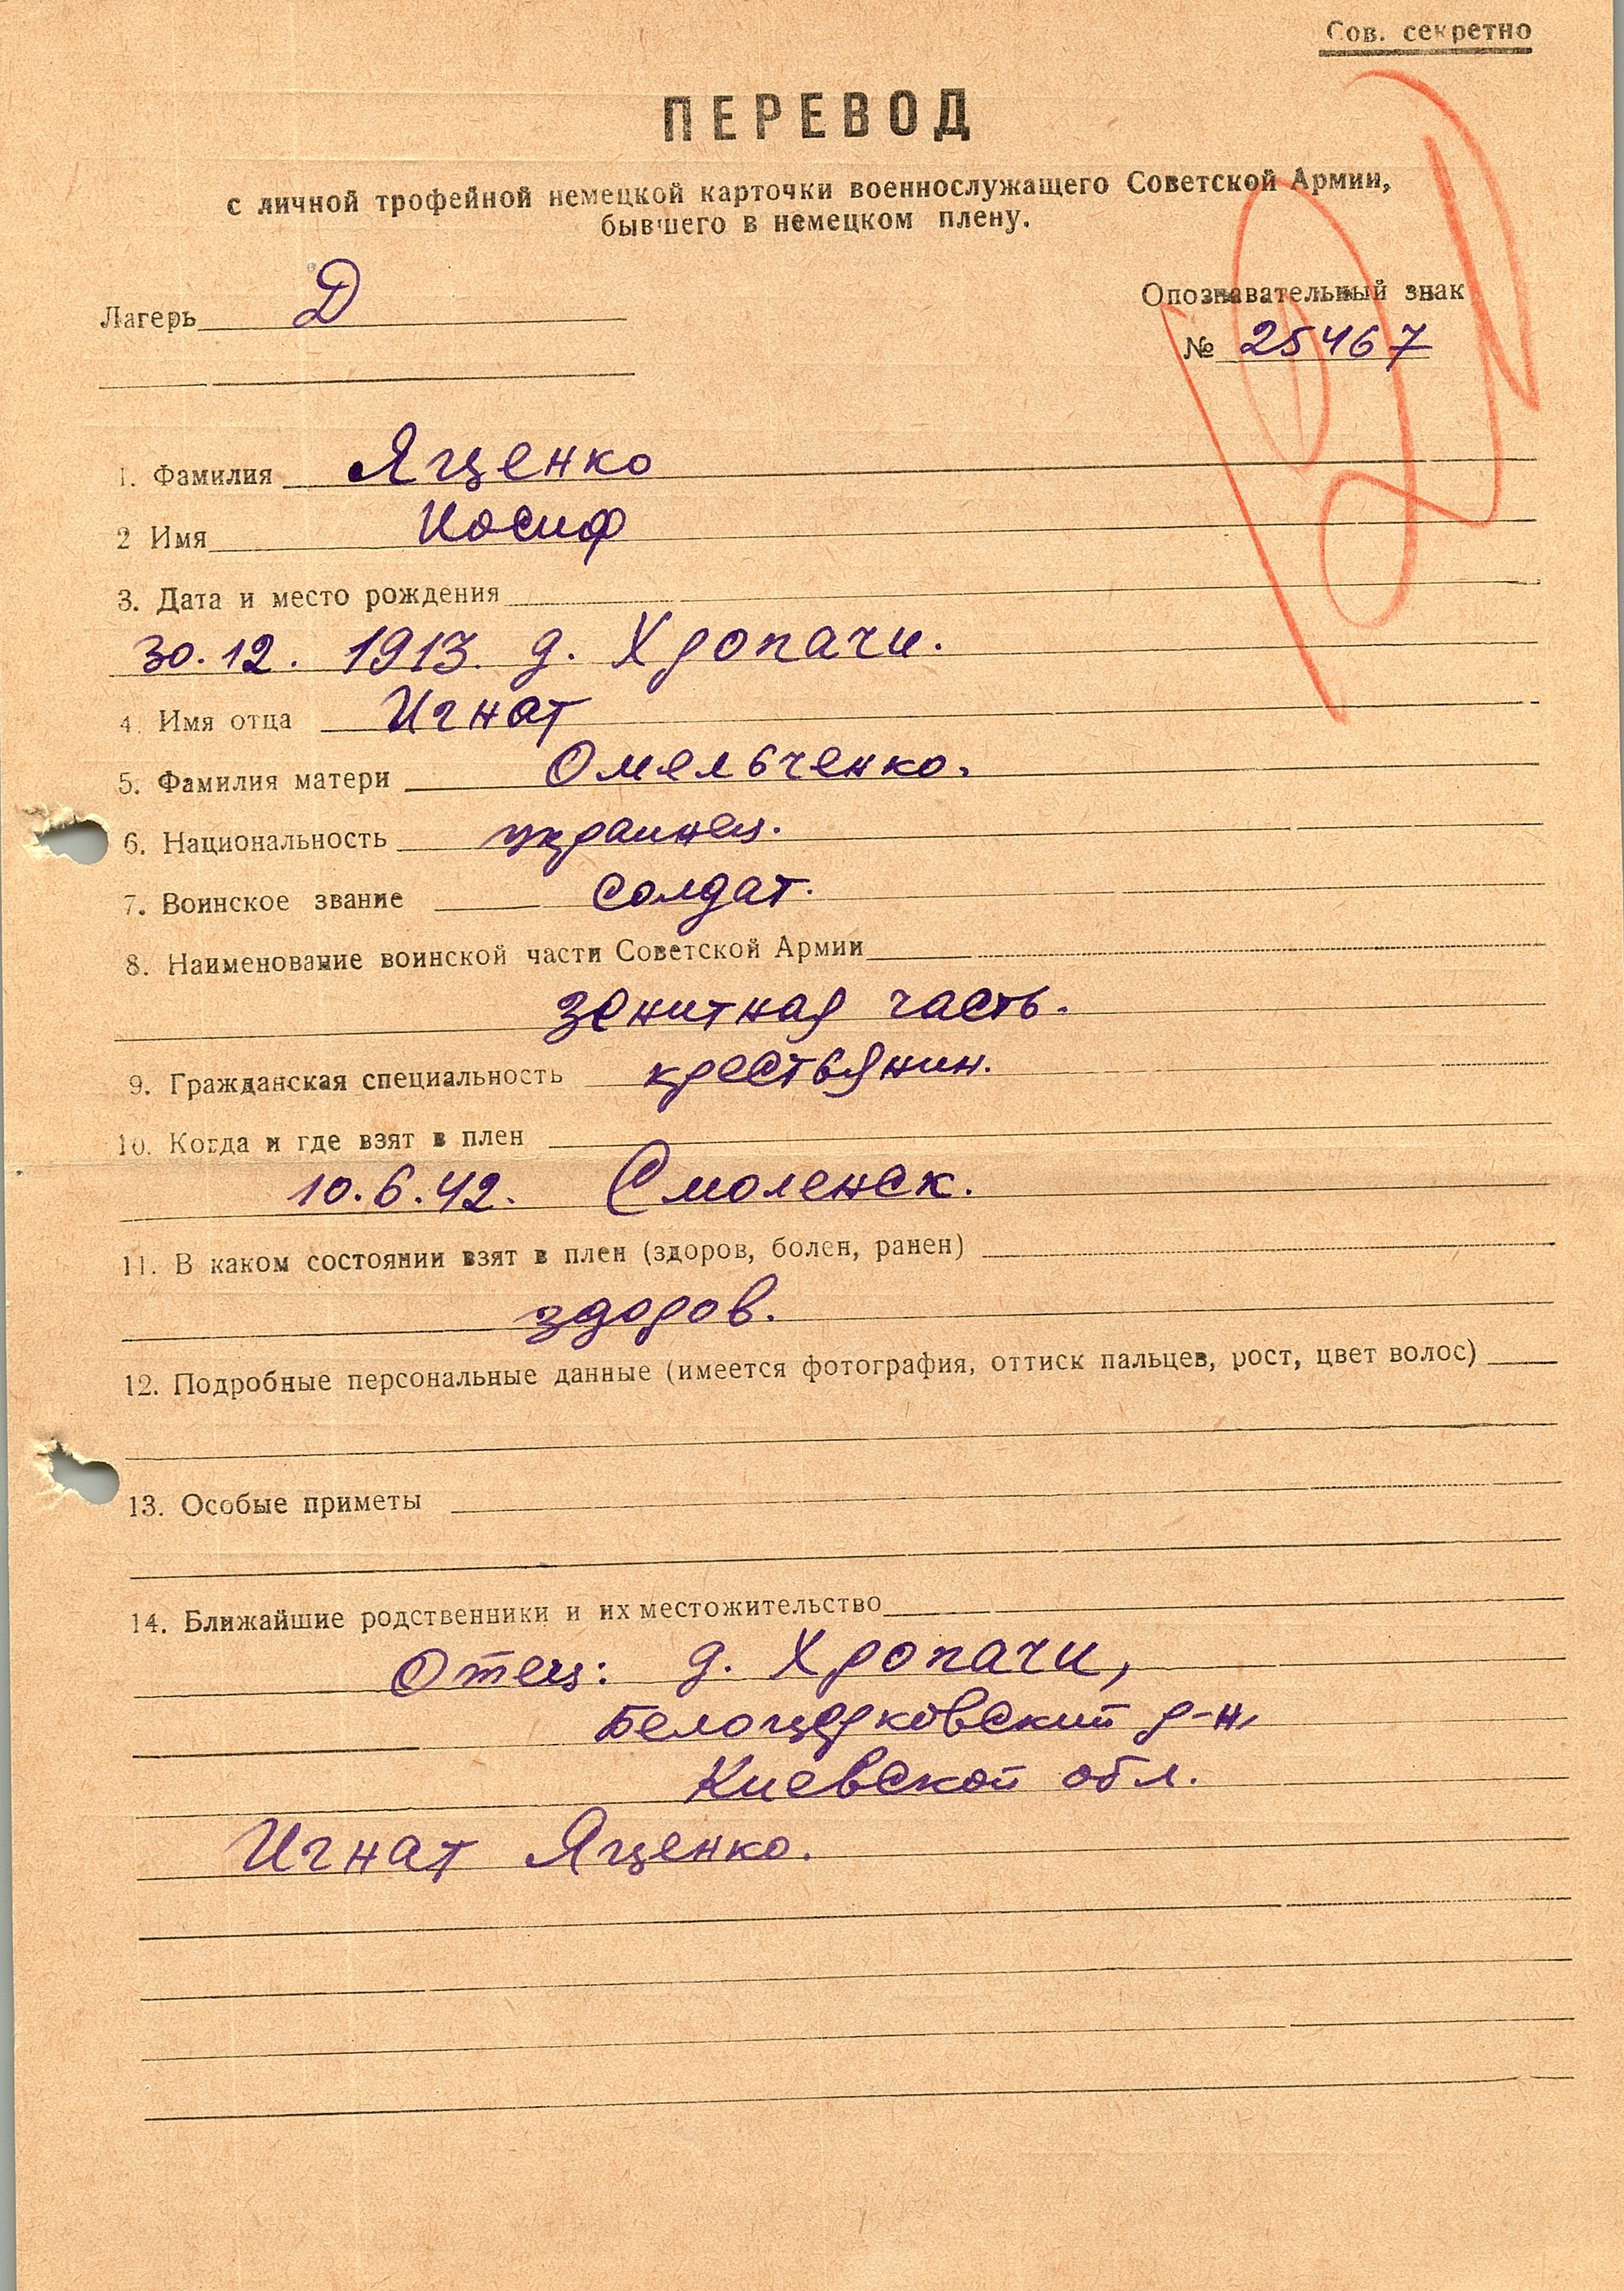 Сов. секретно
ПЕРЕВОД
с личной трофейной немецкой карточки военнослужащего Советской Армии,
бывшего в немецком плену.
Лагерь Д
Опознавательный знак
№ 25467
1. Фамилия Яценко
2 Имя Иосиф
3. Дата и место рождения
30.12. 1913. д. Хропачи.
4. Имя отца Игнат
5. Фамилия матери Омельченко.
6. Национальность украинец.
7. Воинское звание солдат.
8. Наименование воинской части Советской Армии
зенитная часть.
9. Гражданская специальность крестьянин.
10. Когда и где взят в плен
10.6.42. Смоленск.
11. В каком состоянии взят в плен (здоров, болен, ранен)
здоров.
12. Подробные персональные данные (имеется фотография, оттиск пальцев, рост, цвет волос)
13. Особые приметы
14. Ближайшие родственники и их местожительство
Отец: д. Хропачи,
Белоцерковский р-н,
Киевской обл.
Игнат Яценко.